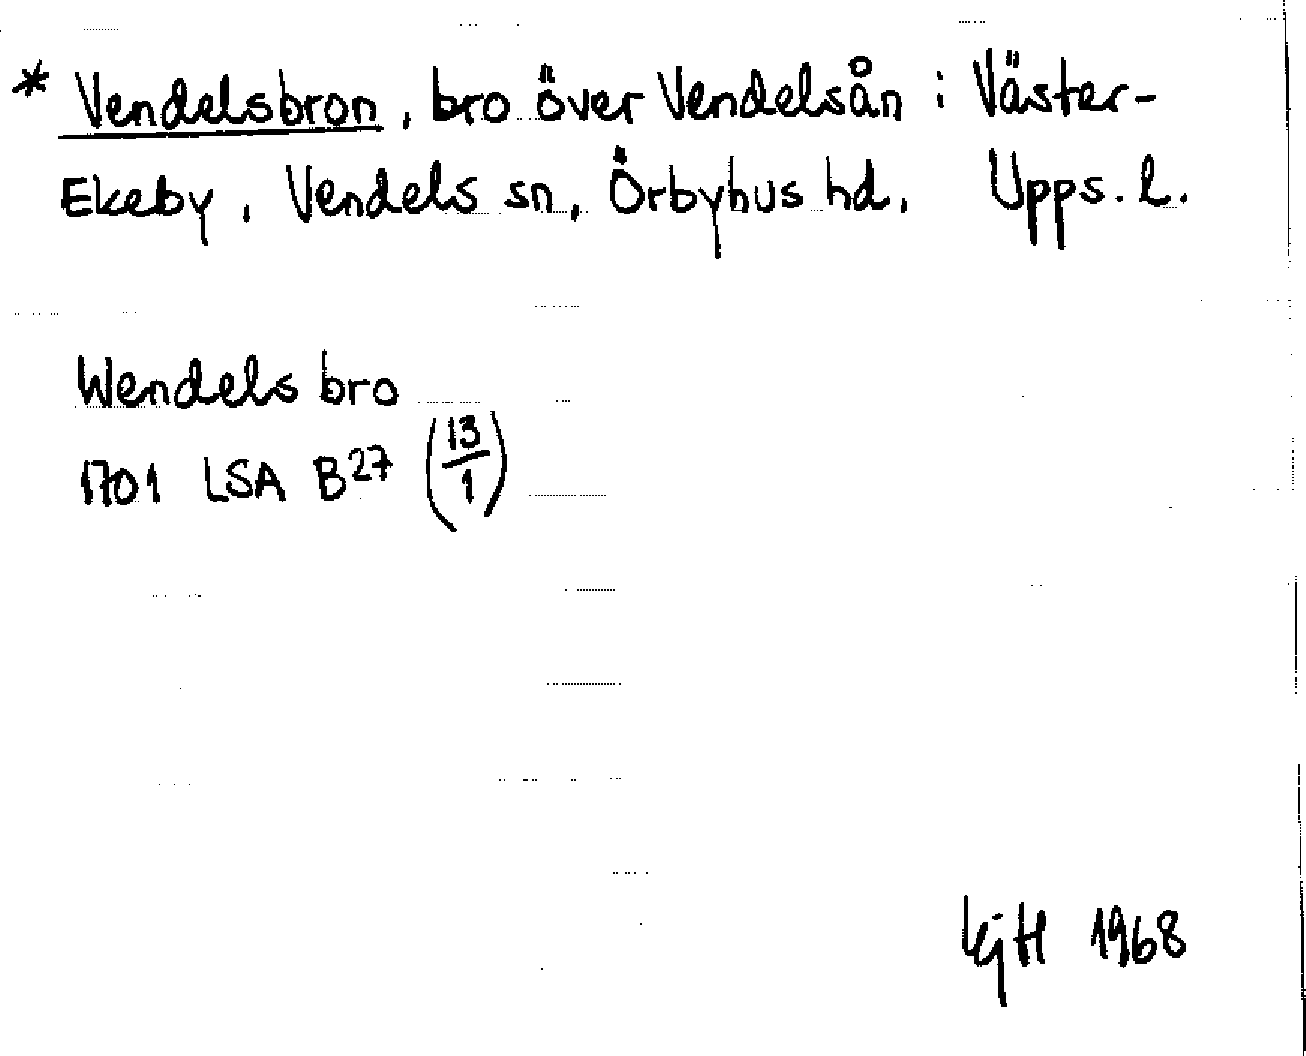 * Vendelsbron, bro över Vendelsån i Väster-
Ekeby, Vendels sn, Örbyhus hd, Upps. l.
Wendels bro
1701 LSA B27 (13/1)
1968